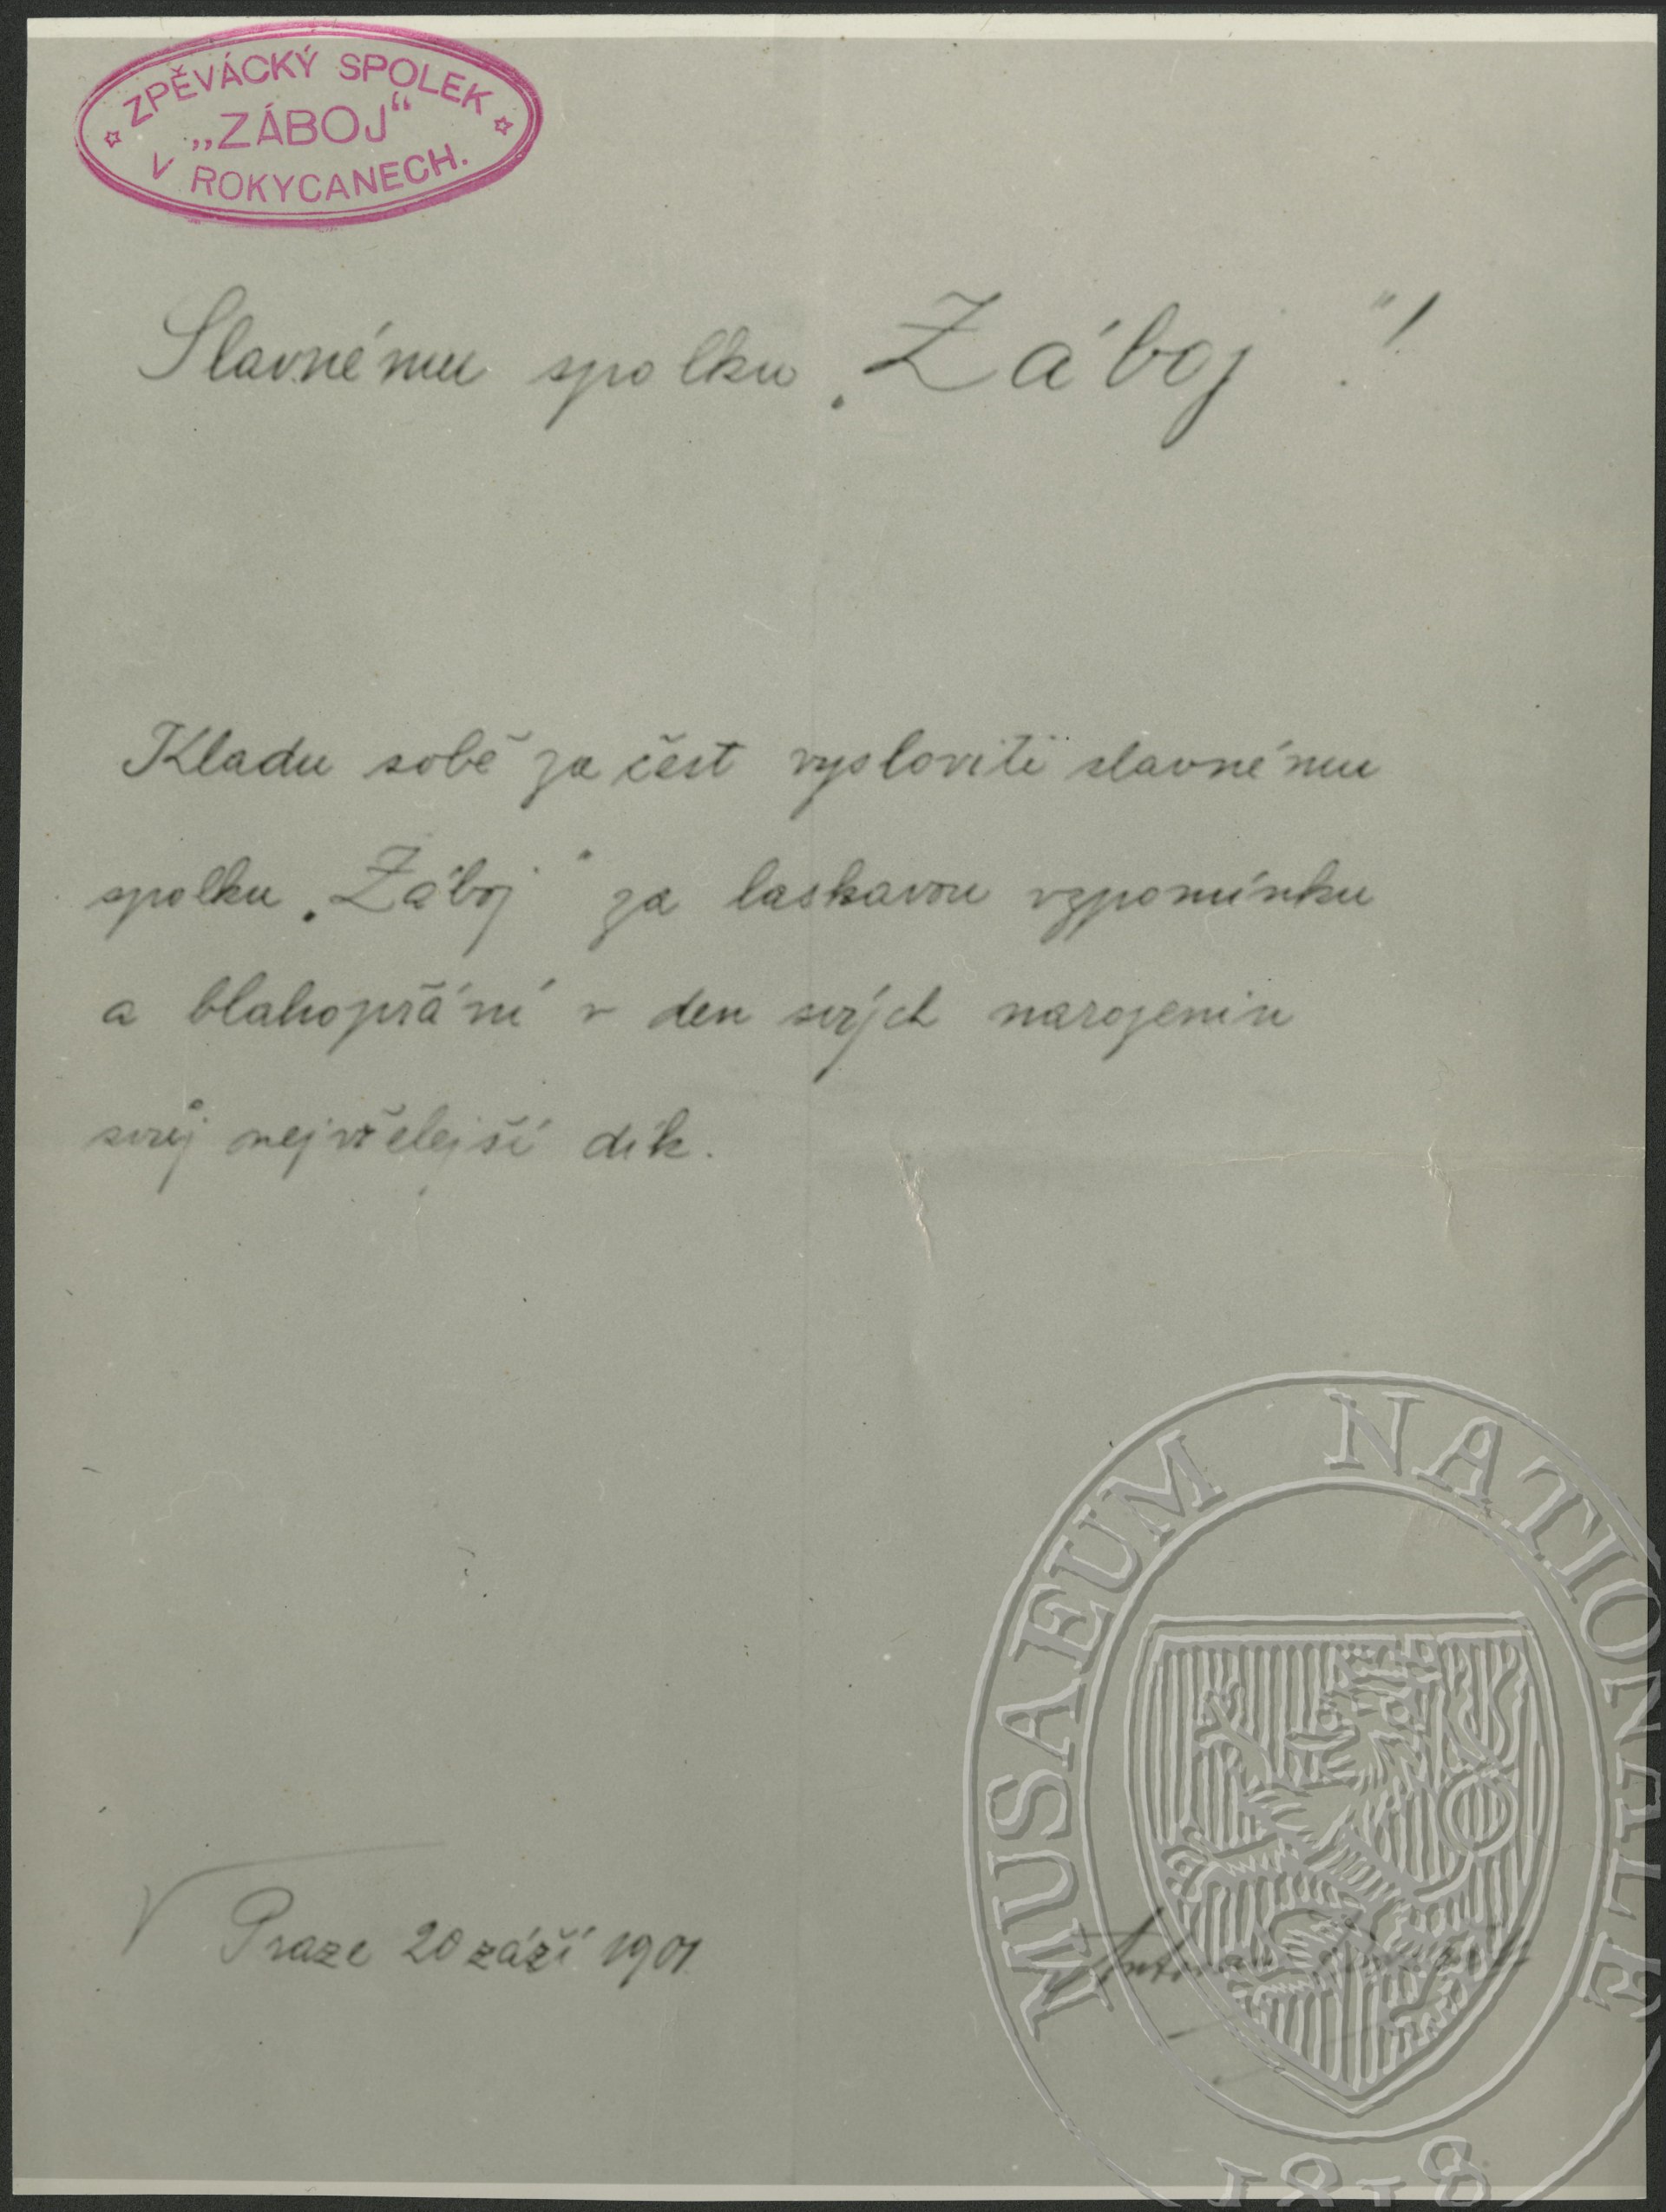 ZPĚVÁCKÝ SPOLEK
„ZÁBOJ“
V ROKYCANECH.
Slavnému spolku „Záboj“!
Kladu sobě za čest vysloviti slavnému
spolku „Záboj“ za laskavou vzpomínku
a blahopřání v den svých narozenin
svůj nejvřelejší dík.
V Praze 20 září 1901
Antonín Dvořák
MUSAEUM NATIONALE
1818